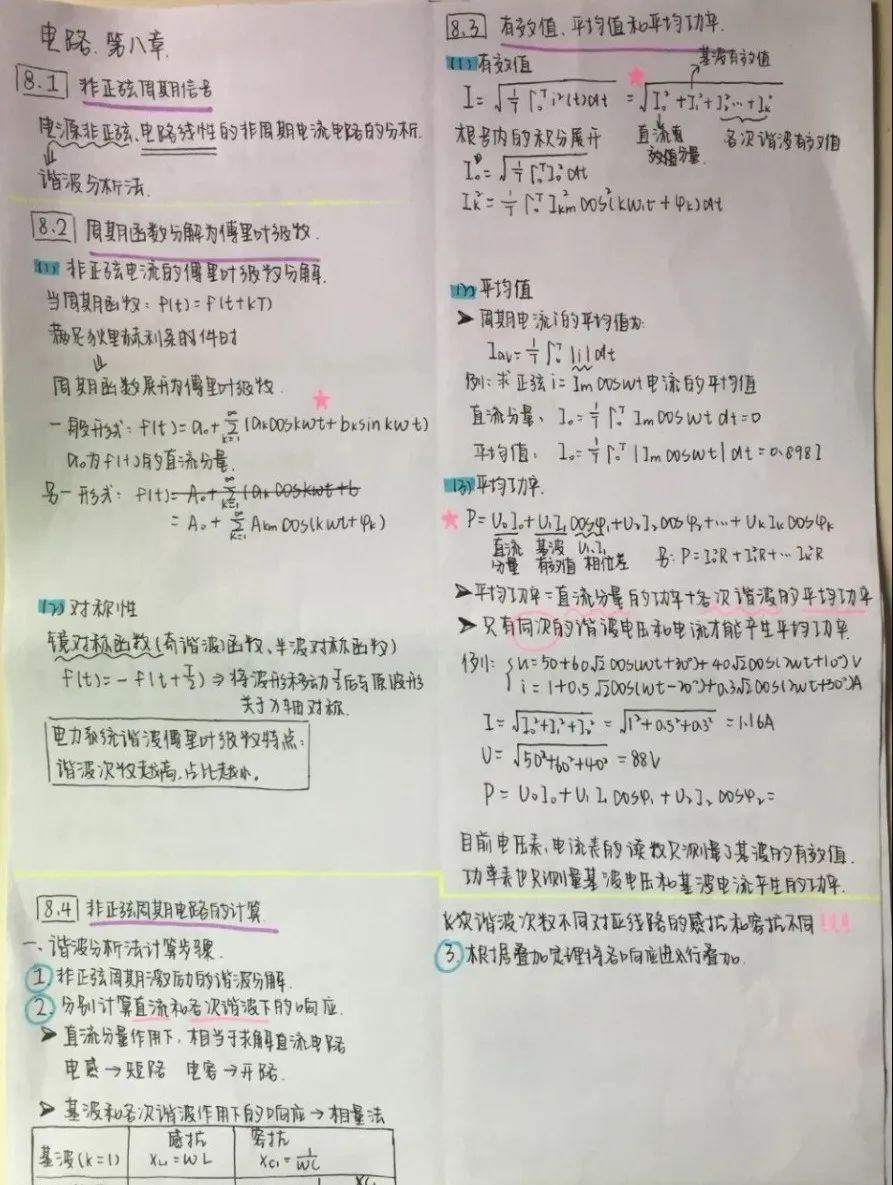 电路.第八章.
8.1 非正弦周期信号
电源非正弦、电路线性的非周期电流电路的分析.
谐波分析法.
8.2 周期函数分解为傅里叶级数.
(1) 非正弦电流的傅里叶级数分解.
当周期函数: f(t)=f(t+kT)
满足狄里赫利条的件时
↓
周期函数展开为傅里叶级数.
一般形式: f(t)=a₀+∑(k=1→∞)(aₖcoskωt+bₖsinkωt)
a₀为f(t)的直流分量.
另一形式: f(t)=A₀+∑(k=1→∞)(aₖcoskωt+b
=A₀+∑(k=1→∞)Aₖₘcos(kωt+φₖ)
(2) 对称性
镜对称函数(奇谐波)函数、半波对称函数)
f(t)=-f(t+T/2)⇒将波形移动T/2后与原波形
关于x轴对称.
电力系统谐波傅里叶级数特点:
谐波次数越高,占比越小。
8.3 有效值、平均值和平均功率.
(1) 有效值
基波有效值
I=√(1/T ∫₀ᵀ i²(t)dt) =√(I₀²+I₁²+I₂²…+Iₖ²)
根号内的积分展开 直流有效值分量. 各次谐波有效值
I₀²=√(1/T ∫₀ᵀ I₀² dt)
Iₖ²=1/T ∫₀ᵀ Iₖₘ² cos²(kω₁t+φₖ)dt
(2) 平均值
➤ 周期电流i的平均值为:
Iav=1/T ∫₀ᵀ |i|dt
例: 求正弦i=Imcosωt电流的平均值
直流分量、I₀=1/T ∫₀ᵀ Imcosωt dt=0
平均值: I₀=1/T ∫₀ᵀ |Imcosωt|dt=0.898I
(3) 平均功率.
P=U₀I₀+U₁I₁cosφ₁+U₂I₂cosφ₂+…+UₖIₖcosφₖ
直流分量 基波有效值 U₁、I₁相位差 另: P=I₀²R+I₁²R+…Iₖ²R
➤平均功率=直流分量的功率+各次谐波的平均功率
➤只有同次的谐波电压和电流才能产生平均功率.
例1: {u=50+60√2cos(ωt+30°)+40√2cos(2ωt+10°)V
i=1+0.5√2cos(ωt-20°)+0.3√2cos(2ωt+50°)A
I=√(I₀²+I₁²+I₂²)=√(1²+0.5²+0.3²)=1.16A
U=√(50²+60²+40²)=88V
P=U₀I₀+U₁I₁cosφ₁+U₂I₂cosφ₂=
目前电压表、电流表的读数只测量了基波的有效值.
功率表也只测量基波电压和基波电流产生的功率.
8.4 非正弦周期电路的计算
一、谐波分析法计算步骤.
① 非正弦周期激励的谐波分解.
② 分别计算直流和各次谐波下的响应.
➤ 直流分量作用下,相当于求解直流电路
电感→短路 电容→开路.
➤ 基波和各次谐波作用下的响应→相量法
基波(k=1) 感抗 XL₁=ωL 容抗 XC₁=1/ωC
k次谐波次数不同对应线路的感抗和容抗不同!!!!
③.根据叠加定理将各响应进行叠加.